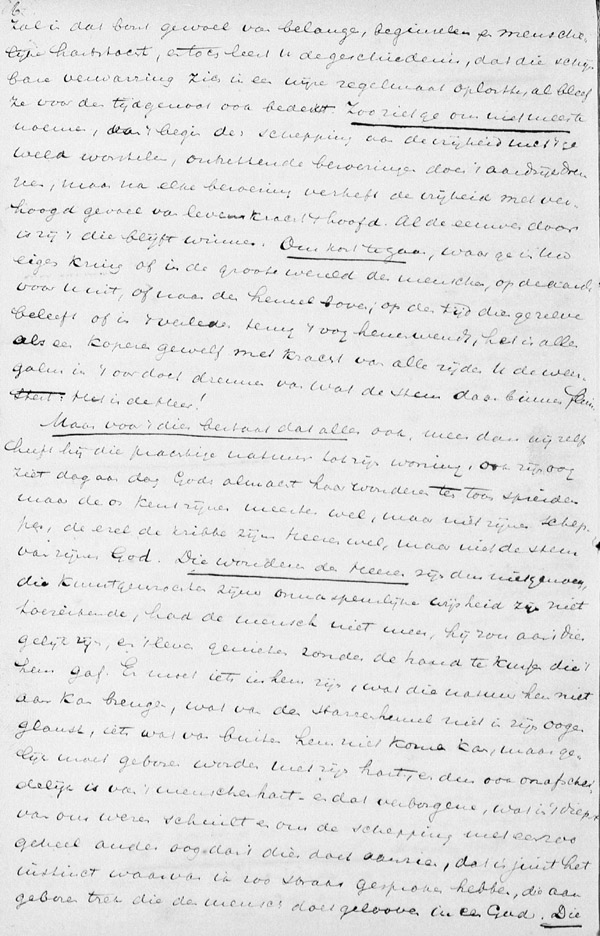 6.
Zal in dat bont gewoel van belangen, beginselen en mensche-
lijke hartstocht, en toch leert U de geschiedenis, dat die schijn-
bare verwarring zich in een wijze regelmaat oploste, al bleef
ze voor den tijdgenoot ook bedekt. Zoo ziet ge om niet meer te
noemen, van 't begin der schepping aan de vrijheid met 't ge
weld worstelen, ontzettende beroeringen doen 't aardrijk dreu
nen, maar na elke beroering verheft de vrijheid met ver-
hoogd gevoel van levenskracht 't hoofd. Al de eeuwen door
is zij 't die blijft winnen. Om kort te gaan, waar ge in Uw
eigen kring of in de groote wereld der menschen, op de aarde
voor U uit, of naar den hemel boven; op den tijd dien ge zelve
beleeft of in 't verleden terug 't oog henenwendt, het is alles
als een koperen gewelf met kracht van alle zijden U de weer
galm in 't oor doet dreunen van wat de stem daar binnen fluis
stert: Het is de Heer!
Maar voor 't dier bestaat dat alles ook, meer dan wij zelf
heeft hij die prachtige natuur tot zijn woning, ook zijn oog
ziet dag aan dag Gods almacht haar wonderen ten toon spreiden
maar de os kent zijnen meester wel, maar niet zijnen schep-
per, de ezel de kribbe zijns Heeren wel, maar niet de stem
van zijnen God. Die wonderen des Heeren zijn dus niet genoeg,
die kunstgewrochten zijner onnaspeurlijke wijsheid zijn niet
toereikende, had de mensch niet meer, hij zou aan 't dier
gelijk zijn, en 't leven genieten zonder de hand te kussen die 't
hem gaf. Er moet iets in hem zijn, wat die natuur hem niet
aan kan brengen, wat van den starrenhemel niet in zijn oogen
glanst, iets wat van buiten hem niet komen kan, maar ge-
lijk moet geboren worden met zijn hart, en dus ook onafschei
delijk is van 't menschenhart - en dat verborgene, wat in 't diepst
van ons wezen schuilt en ons de schepping met een zoo
geheel ander oog dan 't dier doet aanzien, dat is juist het
instinct waarvan ik zoo straks gesproken hebbe, die aan
geboren trek die den mensch doet gelooven in een God. Die